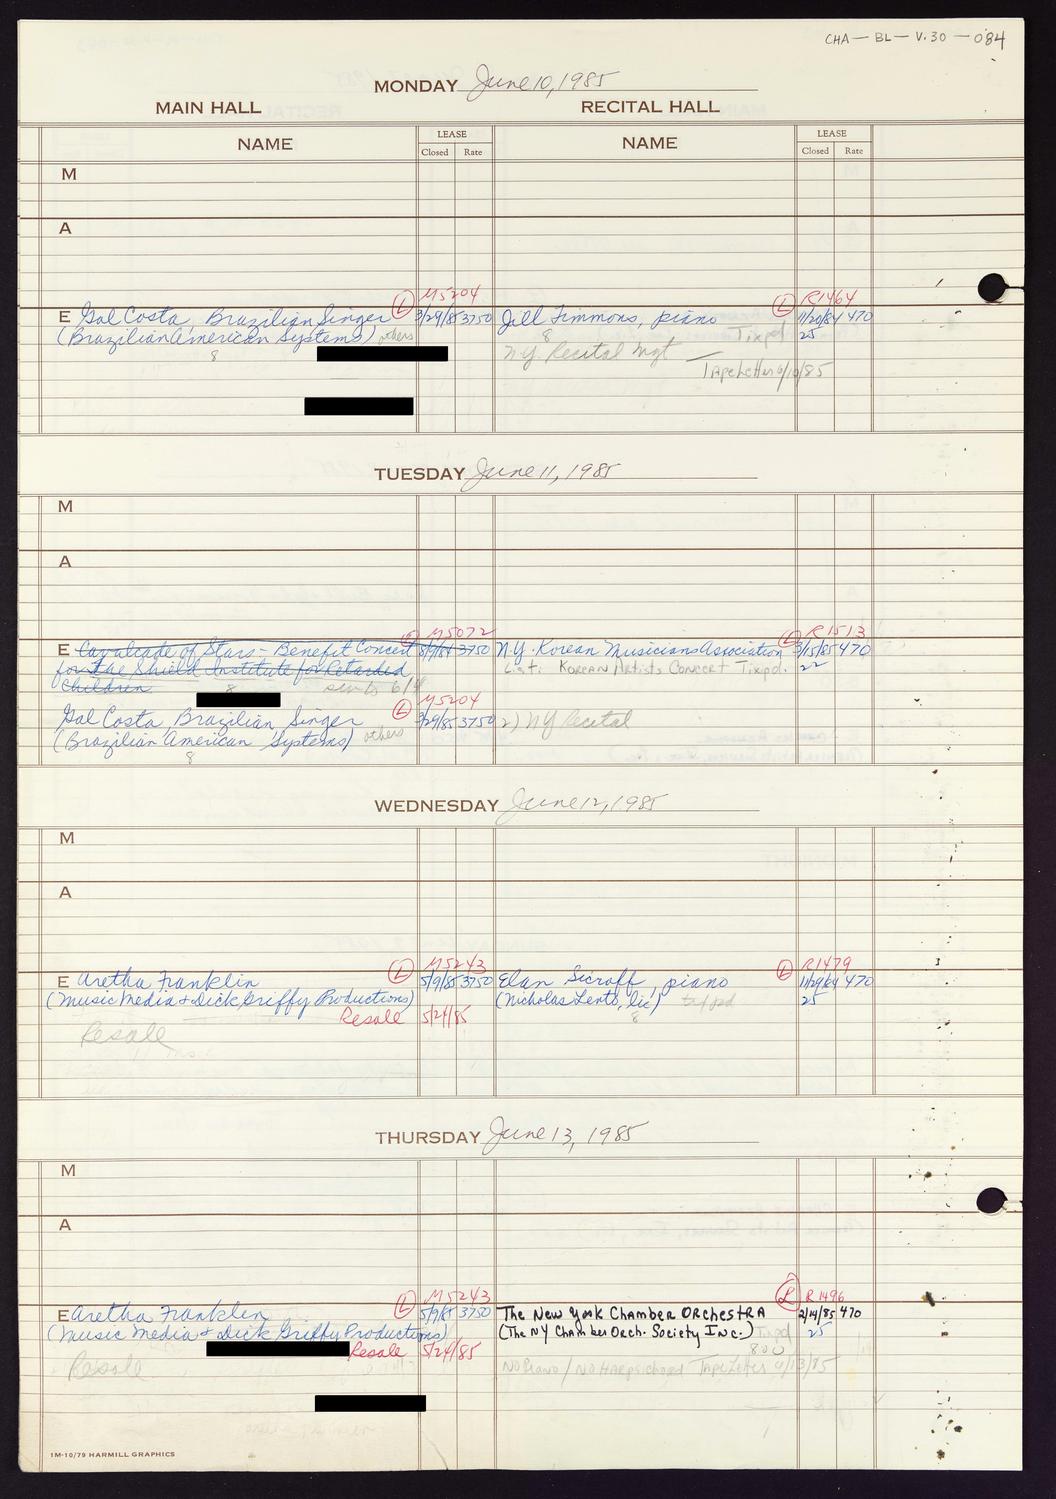 CHA — BL — V.30 — 084
MONDAY June 10, 1985
MAIN HALL RECITAL HALL
NAME LEASE NAME LEASE
Closed Rate Closed Rate
M
A
M5204 R1464
E Gal Costa, Brazilian Singer L 3/29/85 3750 Jill Timmons, piano L 11/20/84 470
(Brazilian American Systems) others 8 Tixpd 25
8 N.Y. Recital Mgt
Tape Letter 6/10/85
TUESDAY June 11, 1985
M
A
M5072 R1513
E Cavalcade of Stars - Benefit Concert 3750 N.Y. Korean Musicians Association L 3/15/85 470
for The Shield Institute for Retarded List. Korean Artists Concert Tixpd. 22
Children 8
M5204
Gal Costa, Brazilian Singer L 3/29/85 3750 2) NY Recital
(Brazilian American Systems) others
8
WEDNESDAY June 12, 1985
M
A
M5243 R1479
E Aretha Franklin L 5/9/85 3750 Elan Sicroff, piano L 11/29/84 470
(Music Media & Dick Griffy Productions) (Nicholas Lento, lic) tixpd 25
Resale 5/24/85 8
Resale
THURSDAY June 13, 1985
M
A
M5243 R1496
E Aretha Franklin L 5/9/85 3750 The New York Chamber Orchestra L 2/14/85 470
(Music Media & Dick Griffy Productions) (The NY Chamber Orch. Society Inc.) Tixpd 25
Resale 5/24/85 800
Resale No Piano / No Harpsichord Tape Letter
1M-10/79 HARMILL GRAPHICS